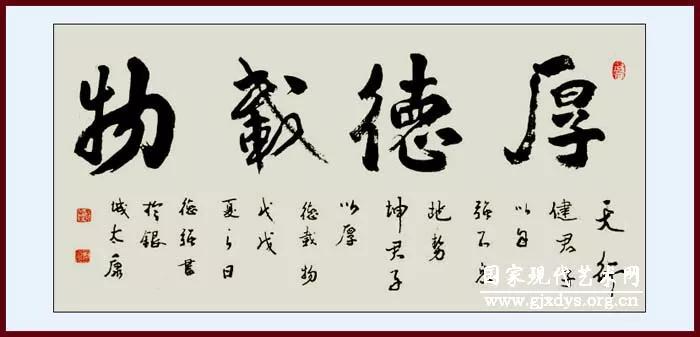 厚德載物
天行
健君子
以自
强不息
地勢
坤君子
以厚
德載物
戊戌
夏之日
德强書
於銀
城太康
国家现代艺术网
www.gjxdys.org.cn